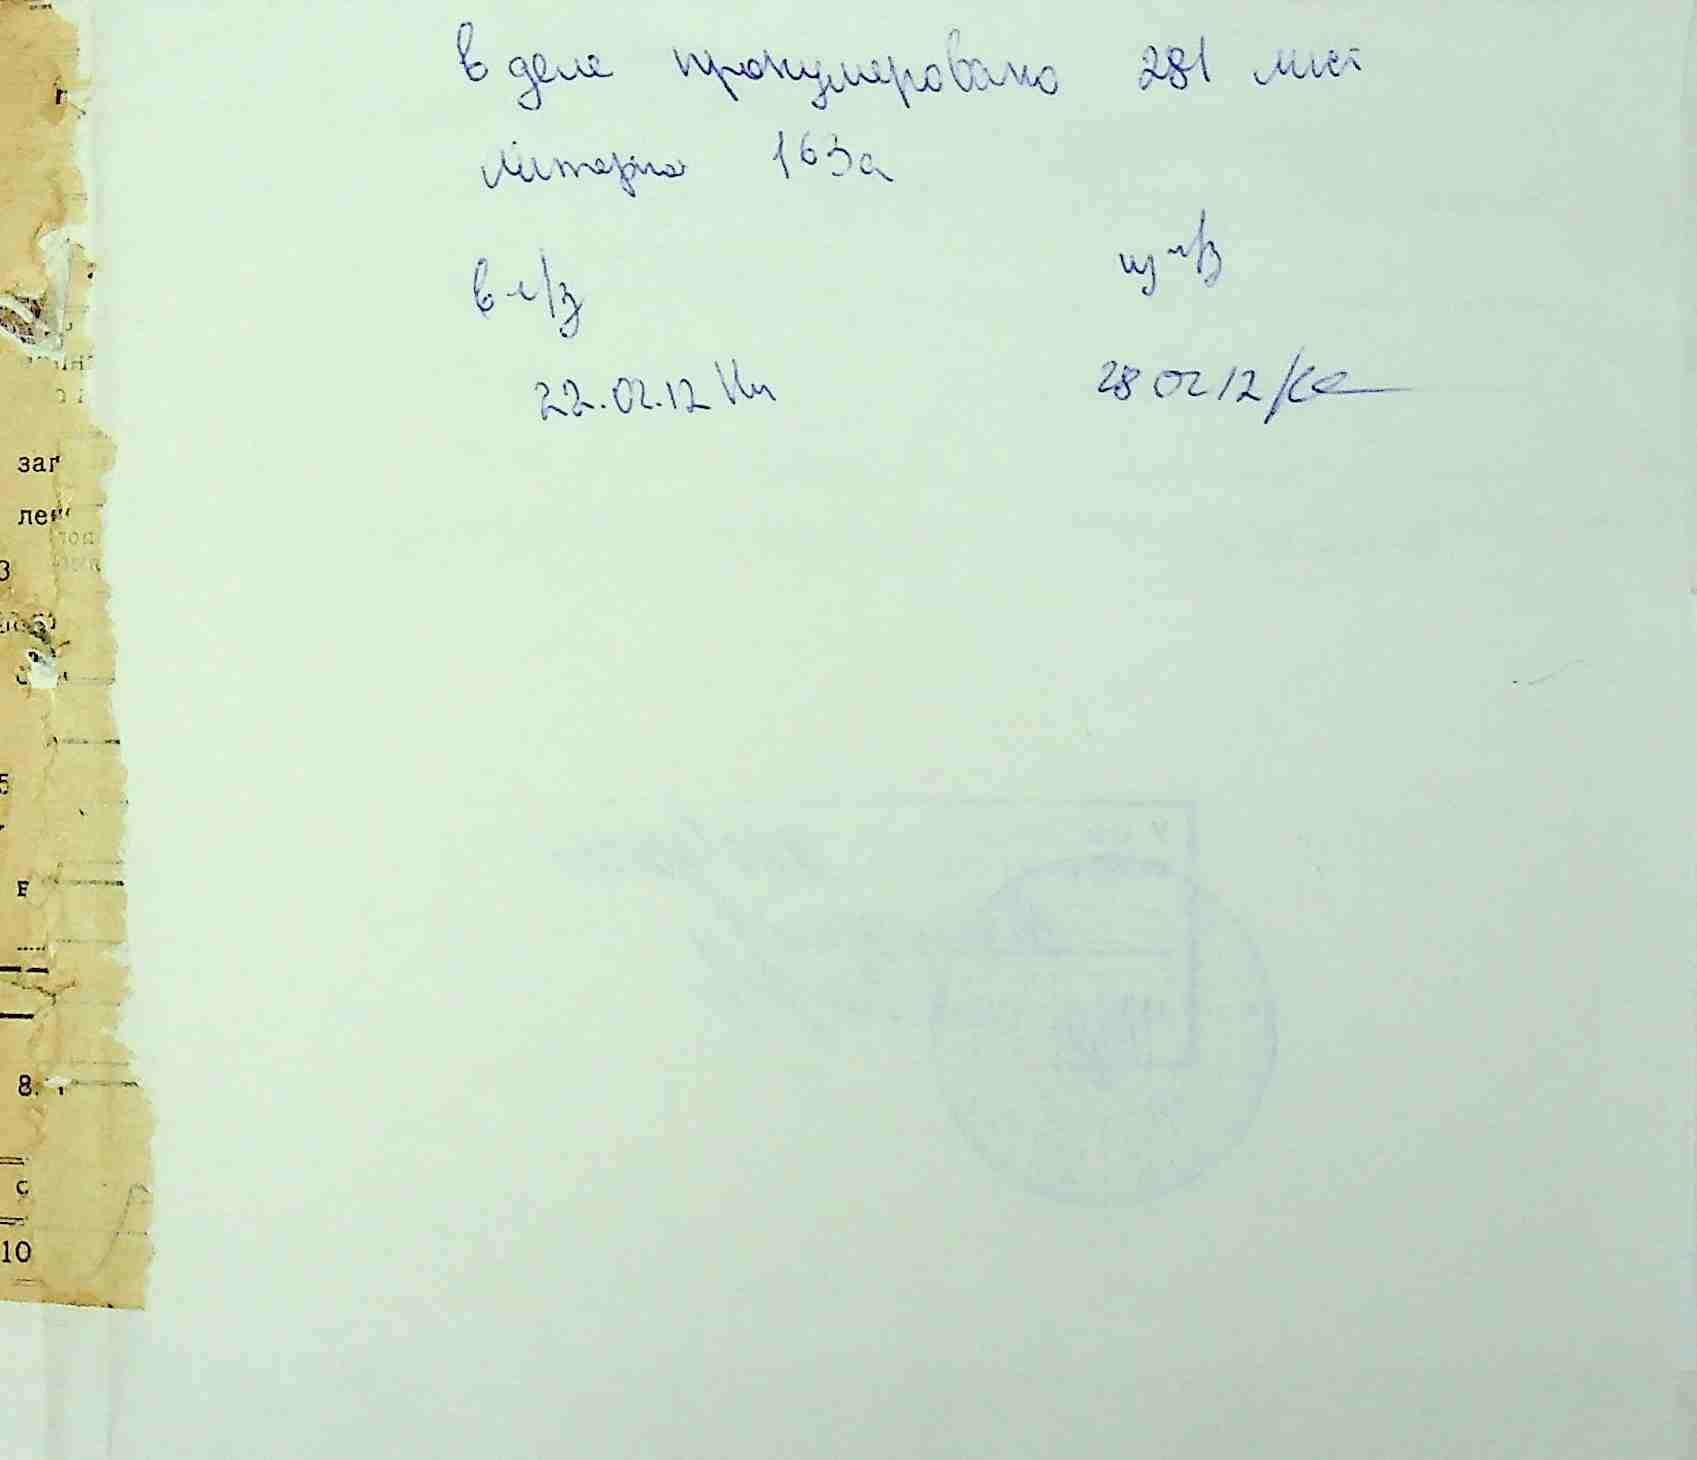 в деле пронумеровано 281 лист
литерна 163а
в ч/з
из ч/з
22.02.12
28 02 12
заг
ле
3
5
в
8.
с
10